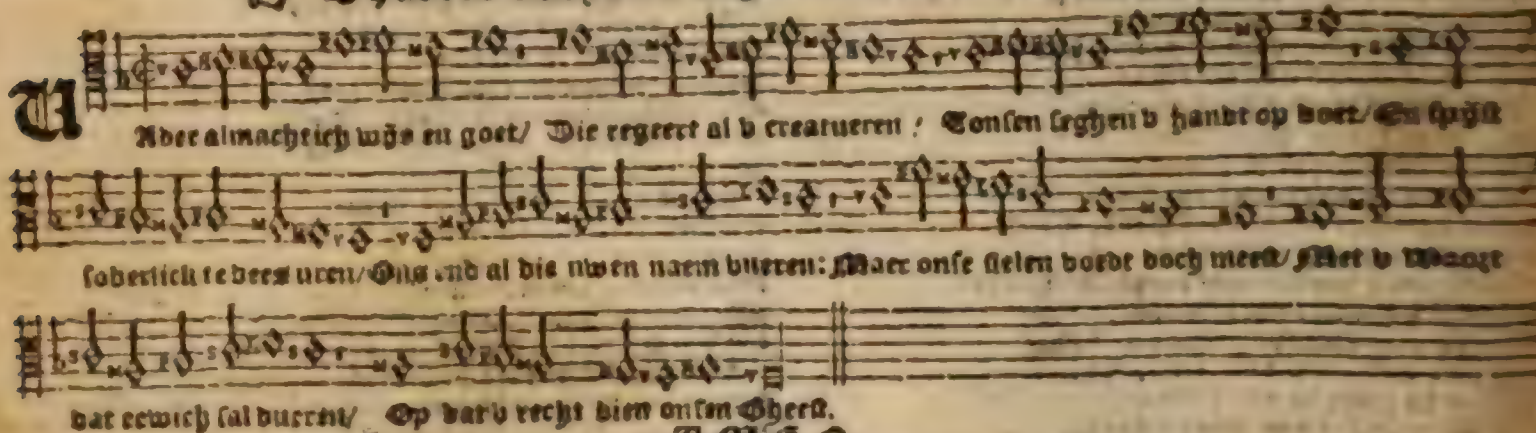 VAder almachtich wijs en goet/ Die regeert al v creatueren: Tonsen seghen v handt op doet/ En spijst
soberlick te deser uren/ Ons end al die uwen naem vueren: Maer onse sielen voedt doch meest/ Met v Woort
dat eewich sal dueren/ Op dat v recht dien onsen Gheest.